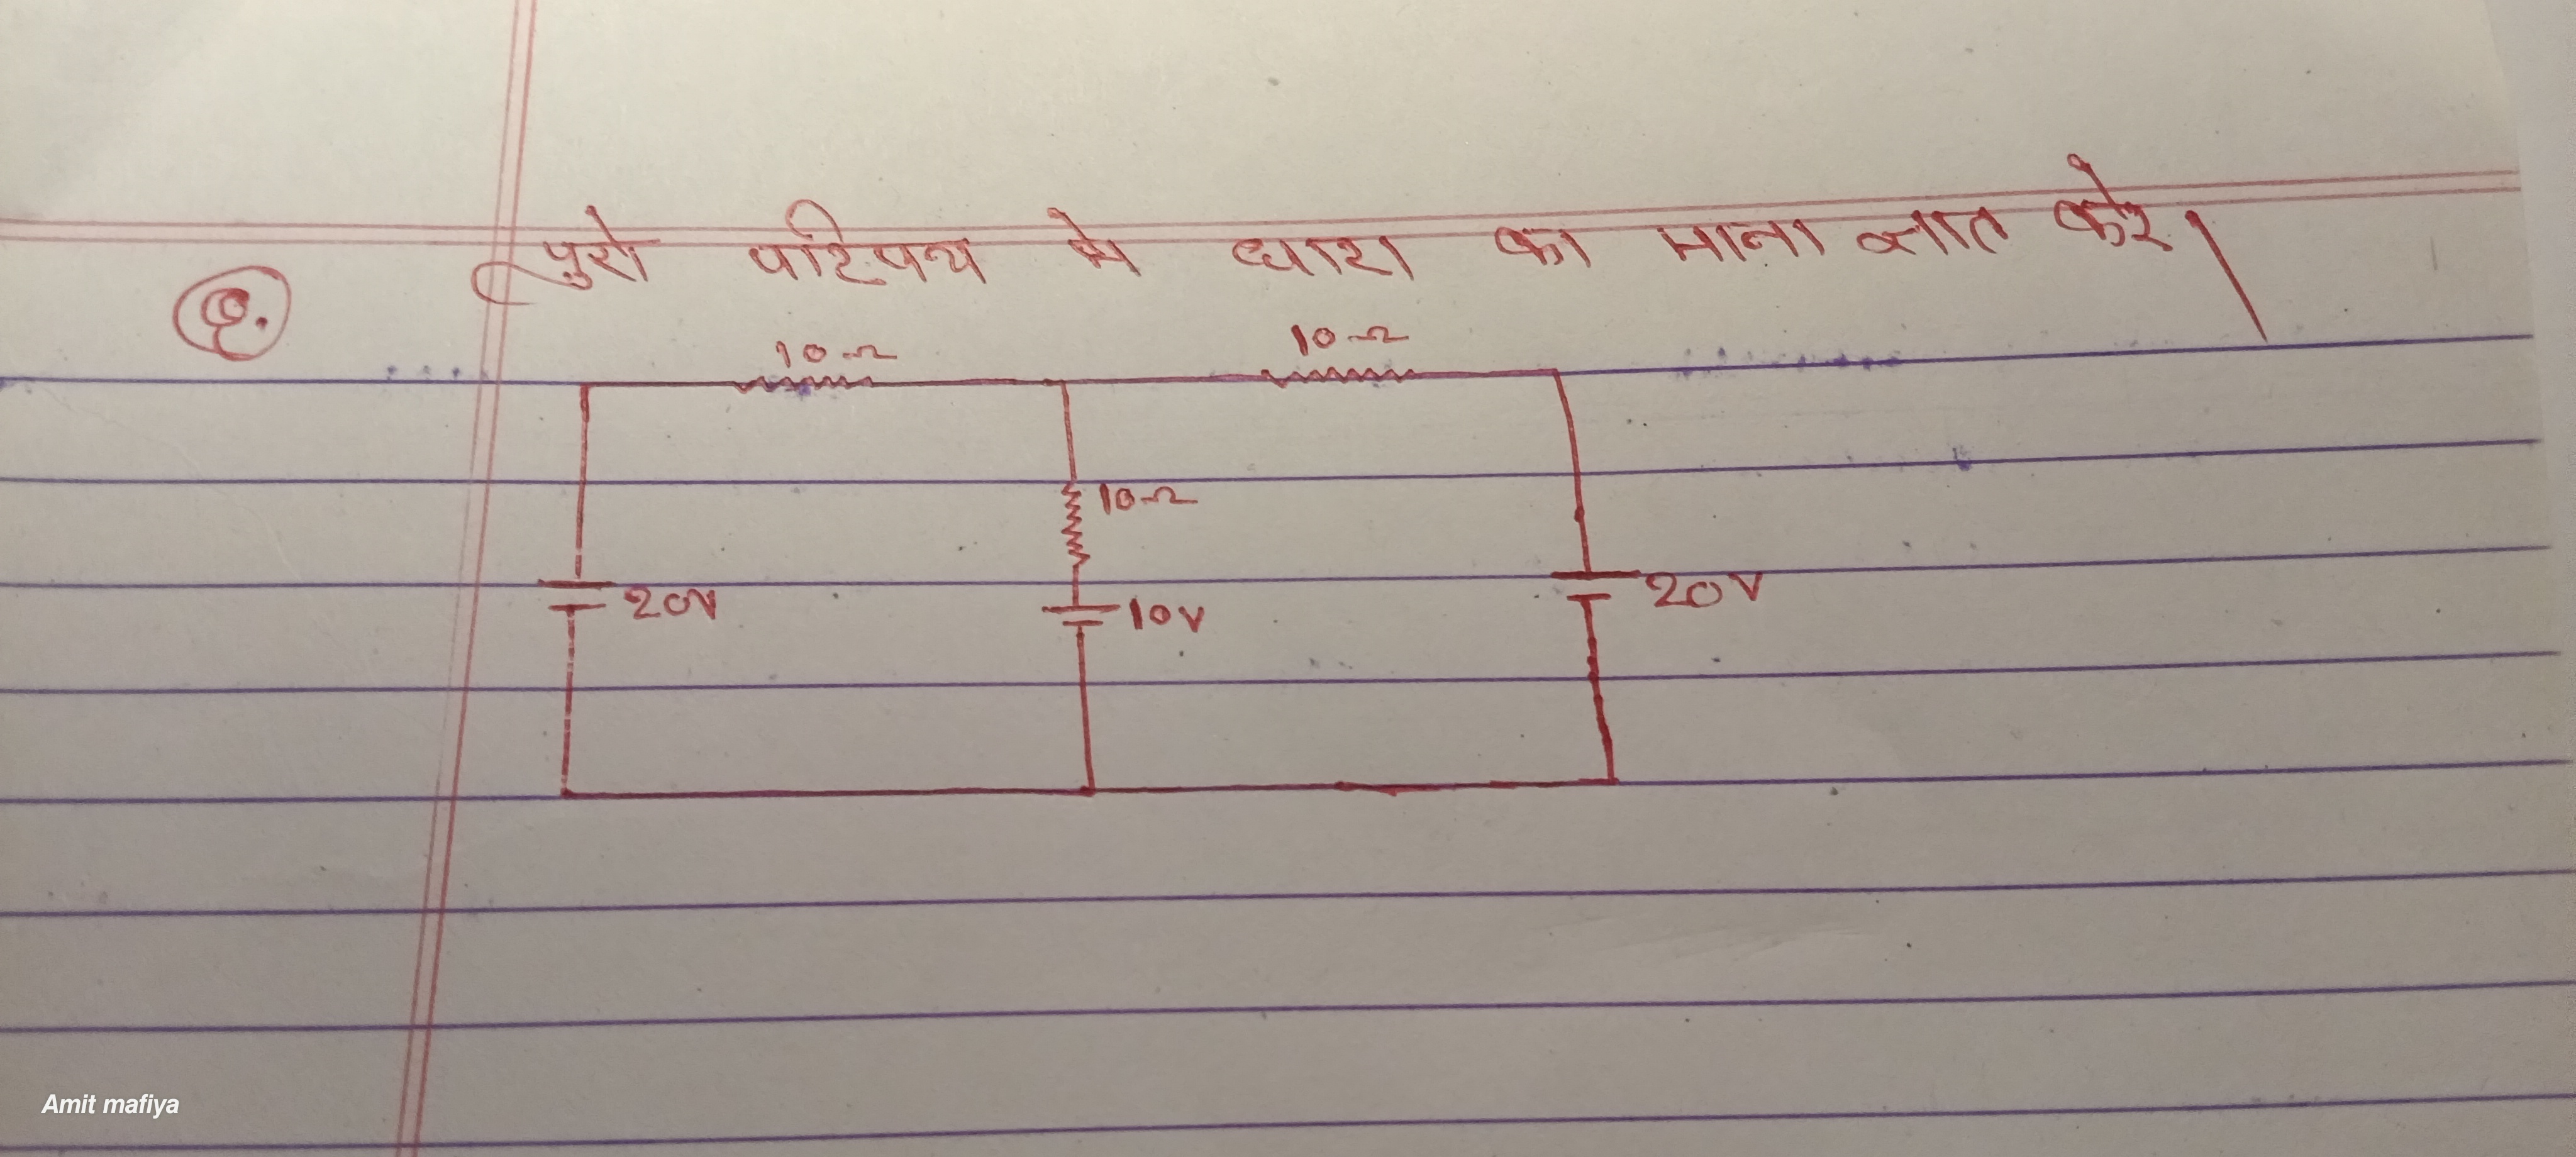 Q. पुरो परिपथ मे धारा का माना ज्ञात करे।
10Ω 10Ω
10Ω
20V 10V 20V
Amit mafiya